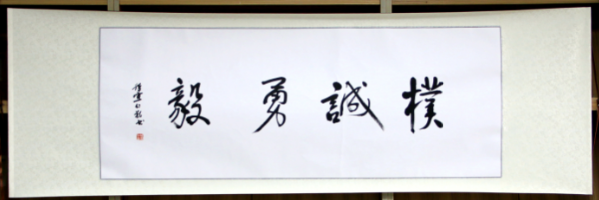 樸誠勇毅